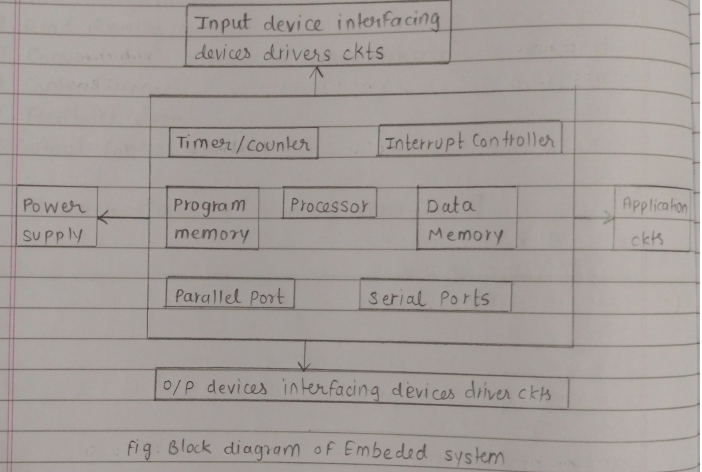 Input device interfacing
devices drivers ckts
Timer/counter
Interrupt Controller
Power
supply
Program
memory
Processor
Data
Memory
Application
ckts
Parallel Port
Serial Ports
O/P devices interfacing devices driver ckts
Fig. Block diagram of Embeded system